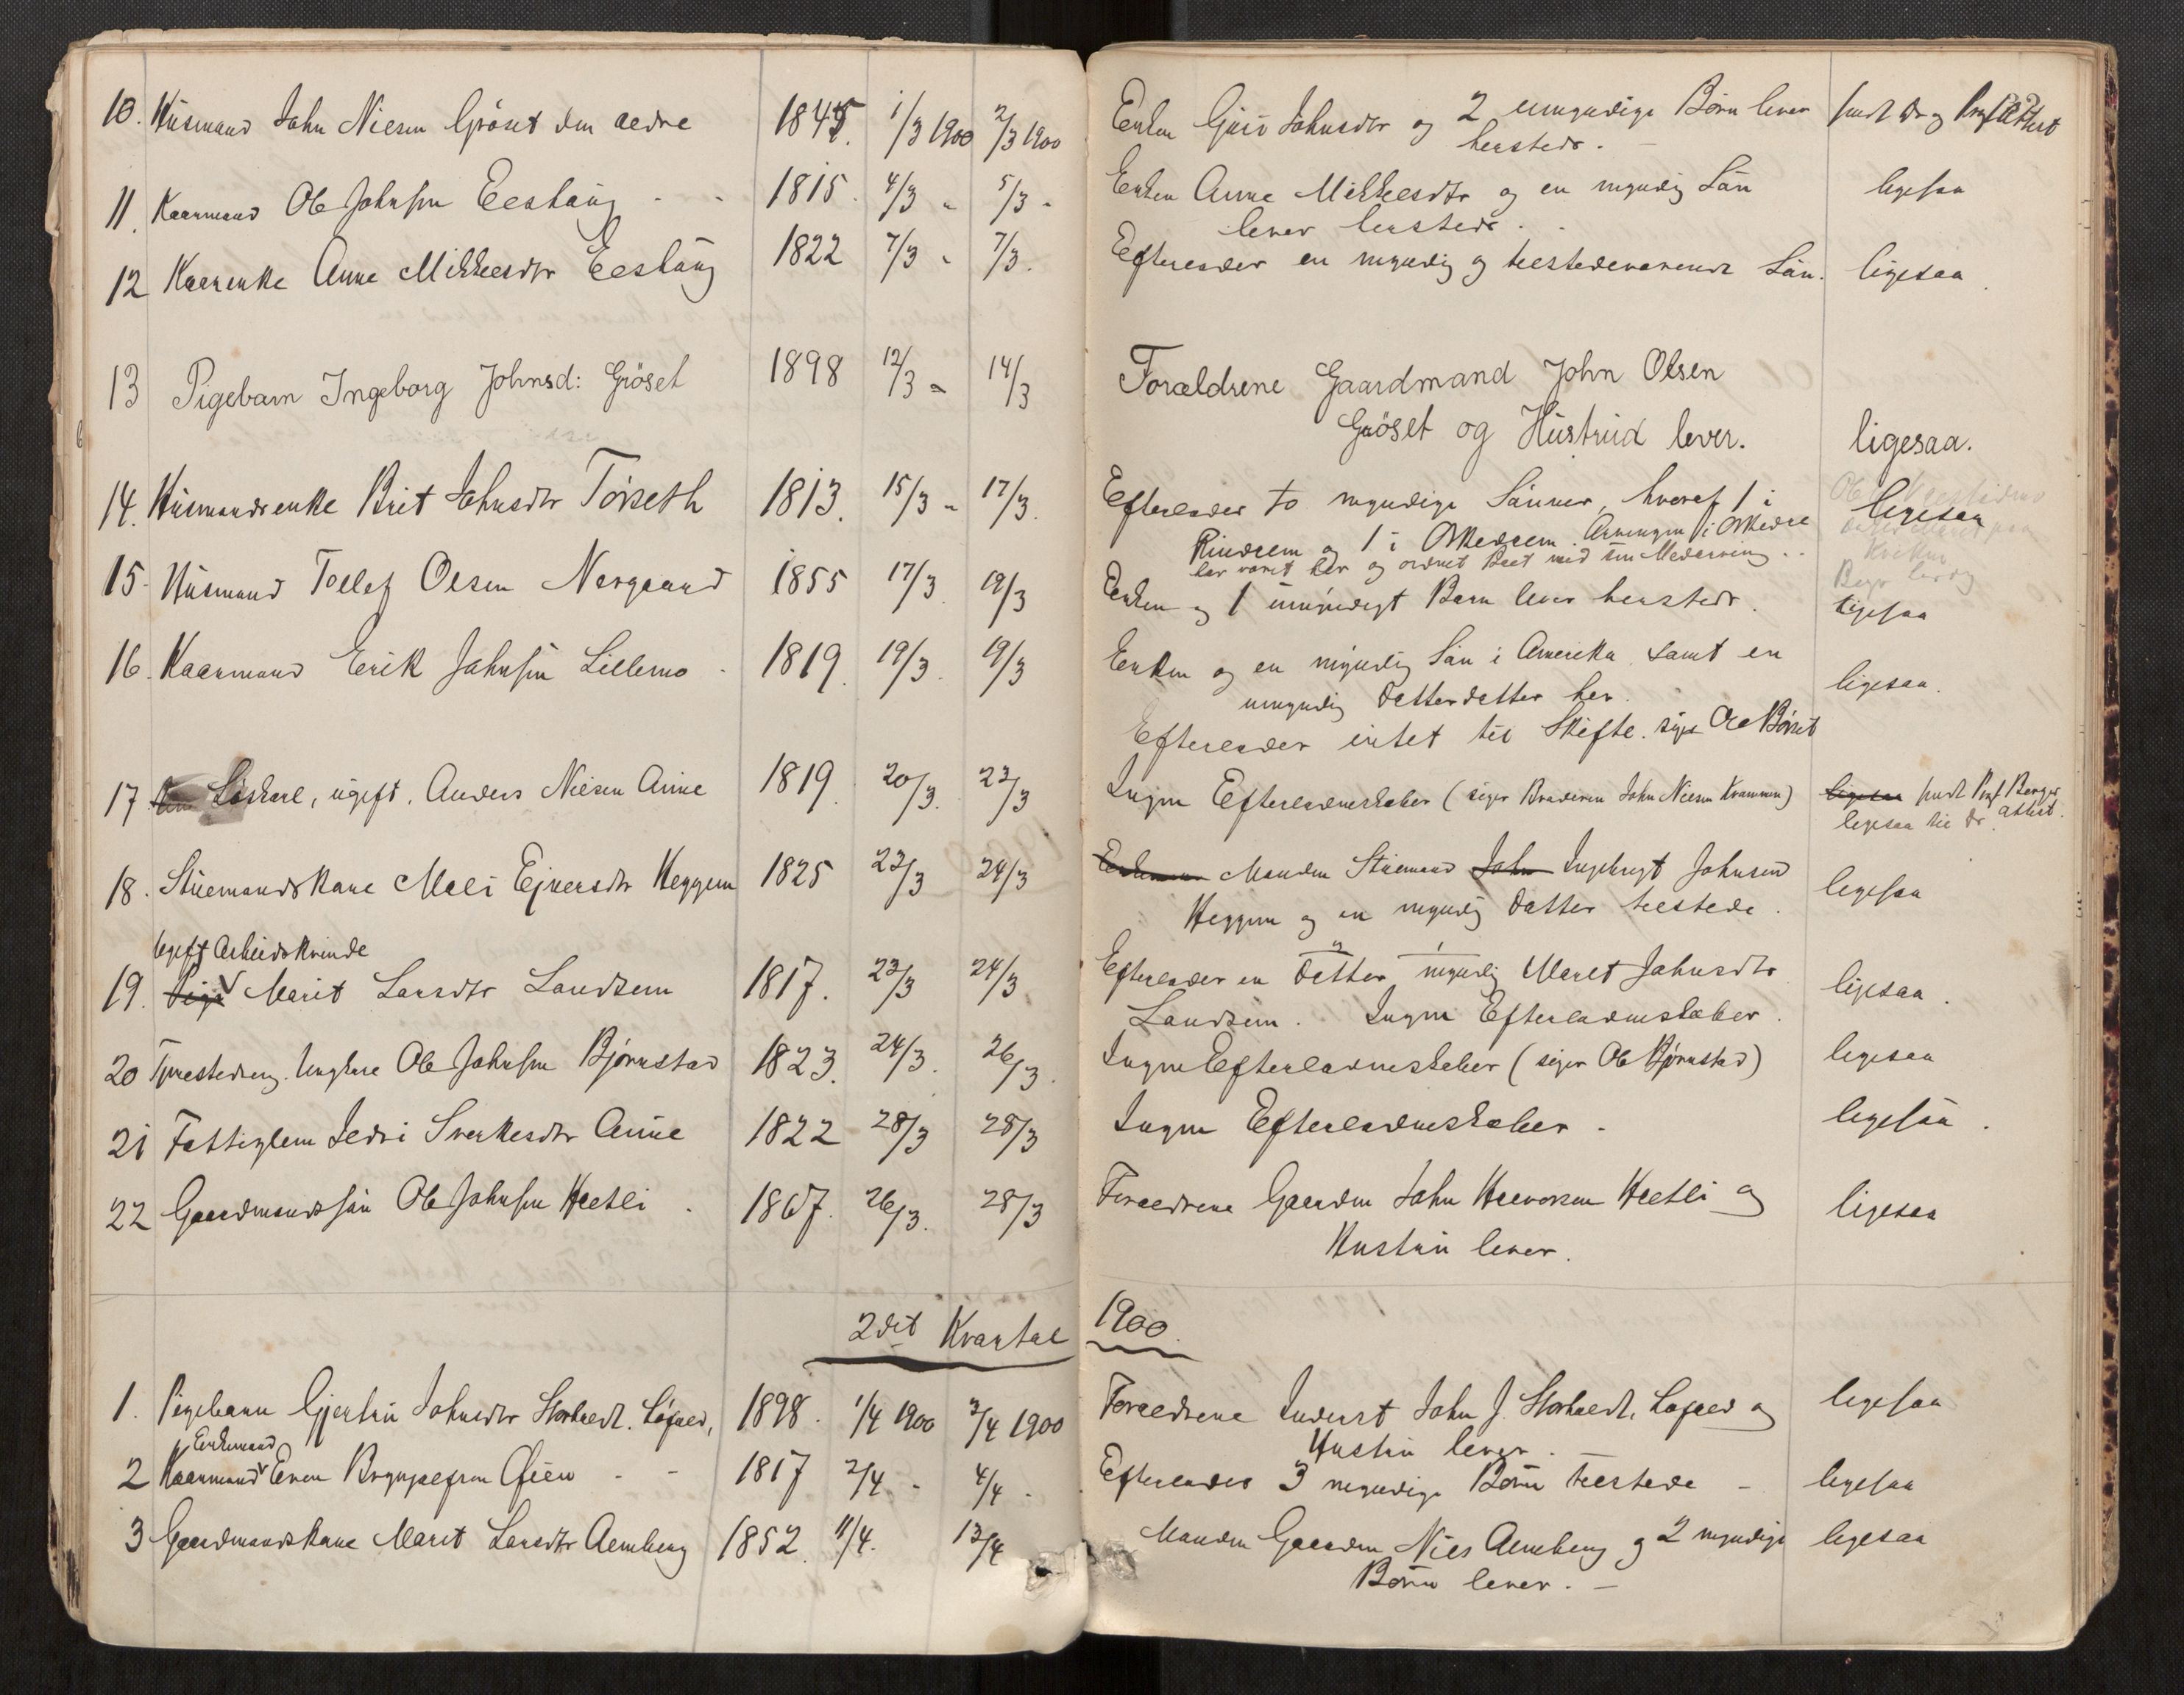 10. Husmand John Nilsen Gröset den ældre 1845. 1/3 1900 2/3 1900 Enken Guri Johnsdtr og 2 umyndige Børn lever
hersteds. -
11. Kaarmand Ole Johnsen 1815. 4/3 " 5/3 " Enken Anne Mikkelsdtr og en myndig Sön ligesaa
lever hersteds.
12 Kaarenke Anne Mikkelsdtr 1822 7/3 " 7/3. Efterlader en myndig og tilstedeværende Sön. ligesaa.
13 Pigebarn Ingeborg Johnsd: Gröset 1898 12/3 " 14/3 Forældrene Gaardmand John Olsen
Gröset og Hüstrüd lever. ligesaa.
14. Husmandsenke Brit Johnsdtr Törseth 1813. 15/3 " 17/3. Efterlader to myndige Sönner, hvoraf 1 i ligesaa
Rindalen og 1 i Orkedalen. Arvingen i Orkedal
har været her og ordnet Boet med sin Medarving.
15. Husmand Tollef Olsen Norgaard 1855 17/3. 19/3 Enken og 1 umyndigt Barn lever hersteds. ligesaa
16. Kaarmand Erik Johnsen Lillemo - 1819. 19/3. 19/3 Enken og en myndig Sön i Amerika samt en
umyndig Datterdatter her. ligesaa.
Efterlader intet til Skifte. siger Ole Börset
17 Löskarl, ugift. Anders Nilsen Aune 1819. 20/3. 23/3 Ingen Efterladenskaber (siger Broderen John Nilsen Krammen) ligesaa
18. Stuemandskone Mali Ejnersdtr Heggem 1825 23/3 24/3 Manden Stuemand John Ingebrigt Johnsen
Heggem og en myndig Datter tilstede. ligesaa
Ugift Arbeidskvinde
19. Pige Marit Larsdtr Landsem 1817. 23/3 24/3. Efterlader en Datter myndig Marit Johnsdtr
Landsem. Ingen Efterladenskaber. ligesaa.
20 Ungkarl Ole Johnsen Björnstad 1823. 24/3. 26/3. Ingen Efterladenskaber (siger Ole Björnstad) ligesaa
21 Fattiglem Sverkesdtr Aune 1822 28/3 28/3 Ingen Efterladenskaber. ligesaa.
22 Gaardmandssön Ole Johnsen Hestli. 1867. 26/3. 28/3 Forældrene Gaardm John Halvorsen Hestli og
Hustru lever. ligesaa
2det Kvartal 1900.
1. Pigebarn Gjertru Johnsdtr 1898. 1/4 1900 3/4 1900 Forældrene Inderst John J. og ligesaa
Hustru lever. -
Enkemand
2 Kaarmand Even Brynjulfsen Øien - - 1817 2/4 " 4/4 " Efterlader 3 myndige Börn tilstede - ligesaa
3 Gaardmandskone Marit Larsdtr Almberg 1852. 11/4. 13/4 Manden Gaardm Nils Almberg og 2 myndige ligesaa
Börn lever. -